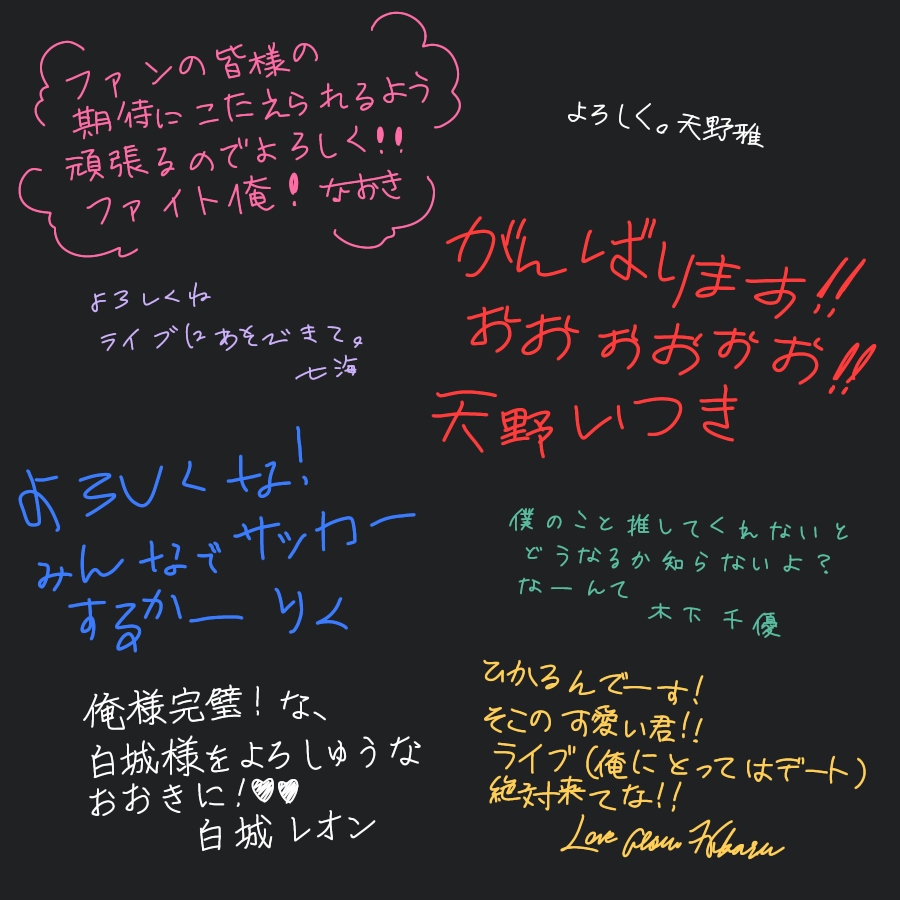 ファンの皆様の
期待にこたえられるよう
頑張るのでよろしく!!
ファイト俺! なおき
よろしく。天野雅
がんばります!!
おおぉおぉお!!
天野いつき
よろしくね
ライブにあそびきて。
七海
よろしくな!
みんなでサッカー
するかー りく
僕のこと推してくれないと
どうなるか知らないよ?
なーんて
木下 千優
俺様完璧!な、
白城様をよろしゅうな
おおきに!♥♥
白城レオン
ひかるんでーす!
そこの可愛い君!!
ライブ(俺にとってはデート)
絶対来てな!!
Love from Hikaru